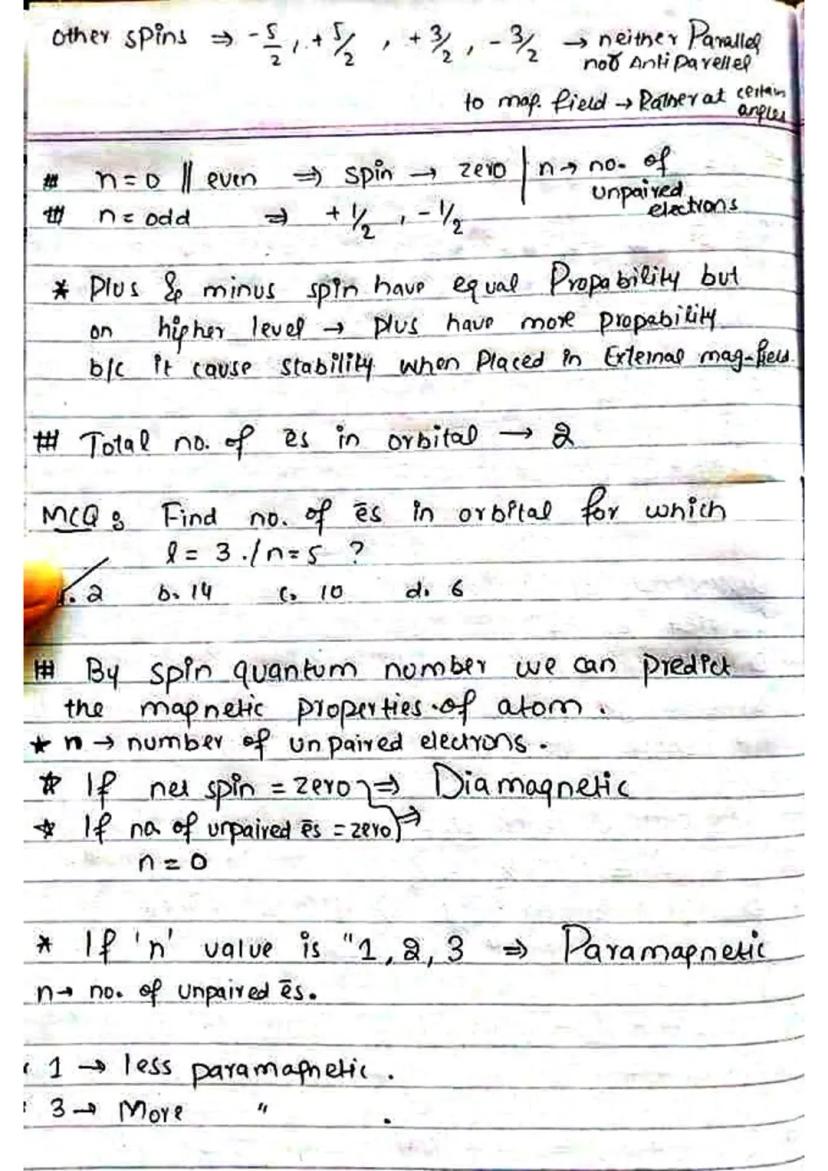 other spins ⇒ -5/2, +5/2, +3/2, -3/2 → neither Parallel
nor Antiparellel
to mag. field → Rather at certain
angles
# n=0 || even ⇒ spin → zero | n → no. of
unpaired
electrons
# n = odd ⇒ +1/2, -1/2
* Plus & minus spin have equal Propability but
on higher level → plus have more propability
b/c it cause stability when Placed in External mag-field.
# Total no. of ēs in orbital → 2
MCQ: Find no. of ēs in orbital for which
l = 3 ./n=5 ?
. 2 b. 14 c. 10 d. 6
# By spin quantum number we can predict
the magnetic properties of atom.
* n → number of unpaired electrons.
* If net spin = zero ⇒ Diamagnetic
* If no. of unpaired ēs = zero ⇒
n = 0
* If 'n' value is "1, 2, 3 ⇒ Paramagnetic
n → no. of unpaired ēs.
1 → less paramagnetic.
3 → More " .